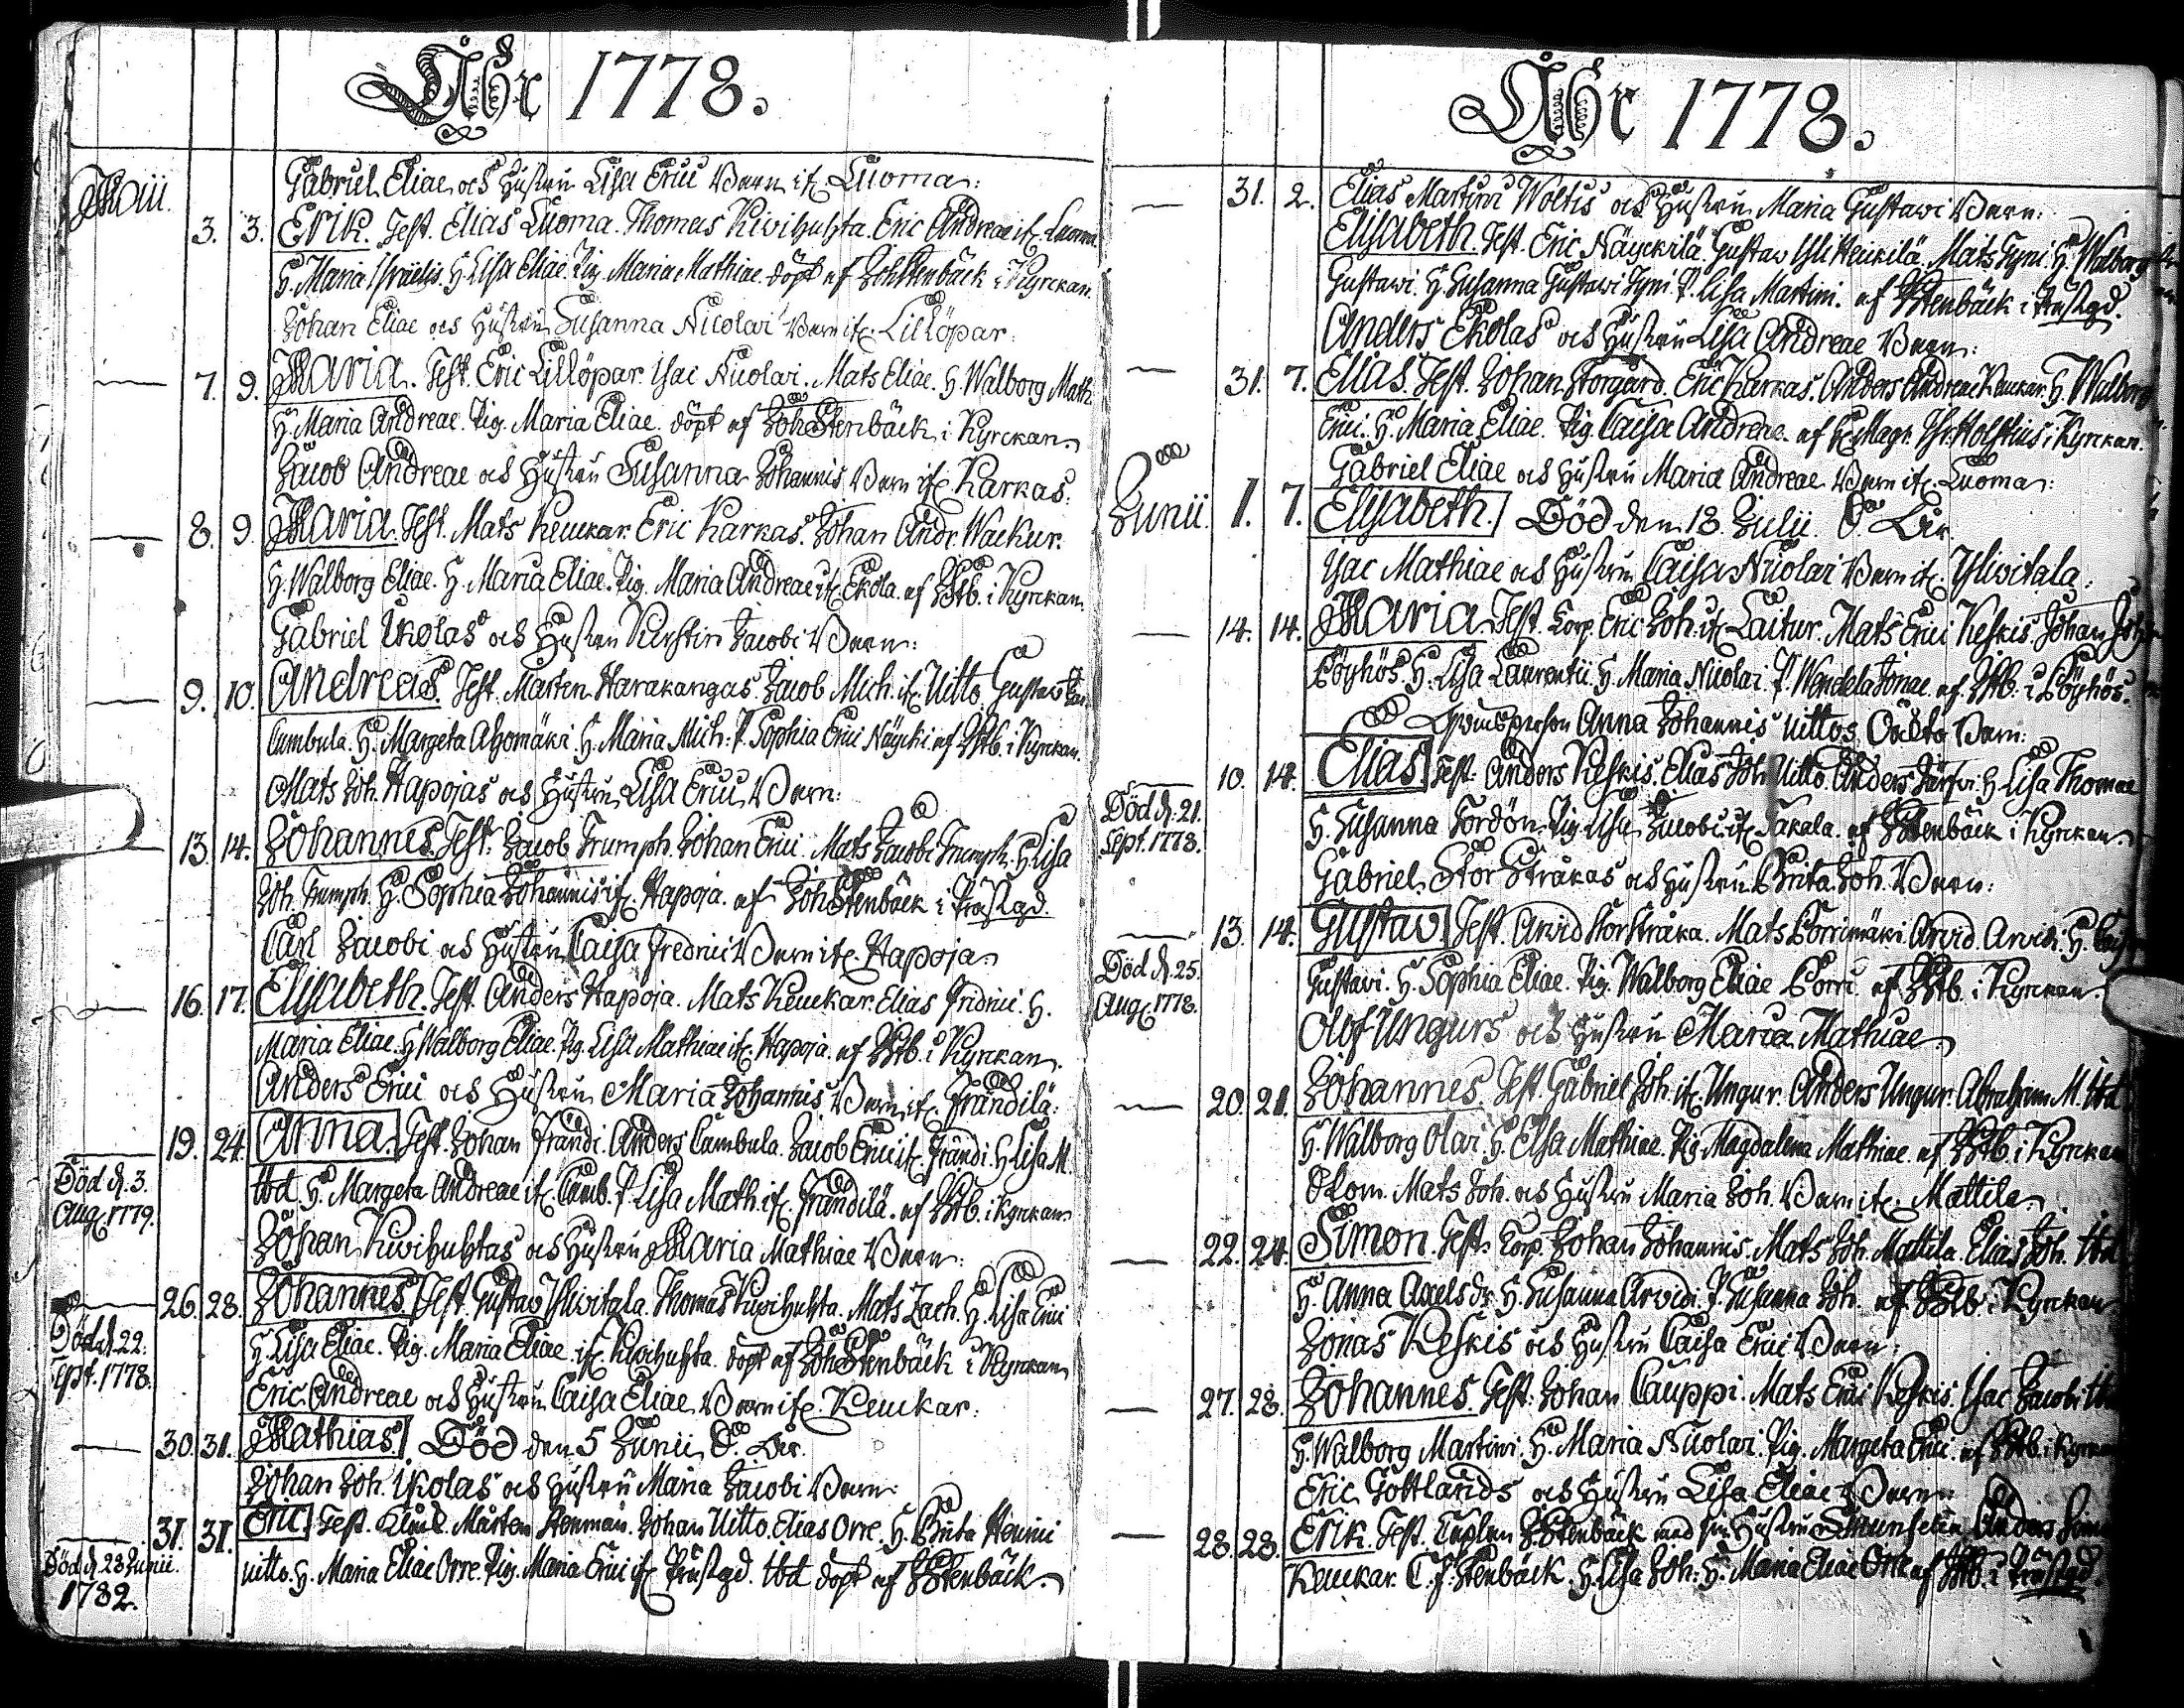 Åhr 1778.
Maii.
Gabriel Eliae och Hustru Lisa Erici Barn ifr. Luoma:
3. 3. Erik. Test. Elias Luoma. Thomas Kivihuhta. Eric Andreae ifr. Luoma.
H. Maria Israelis. H. Lisa Eliae. Pig. Maria Mathiae. döpt af Joh Stenbäck i Kyrckan.
Johan Eliae och Hustru Susanna Nicolai Barn ifr. Lillöpar:
7. 9. Maria. Test. Eric Lillöpar. Isac Nicolai. Mats Eliae. H. Walborg Math.
H. Maria Andreae. Pig. Maria Eliae. döpt af Joh Stenbäck i Kyrckan.
Jacob Andreae och Hustru Susanna Johannis Barn ifr. Karkas:
8. 9. Maria. Test. Mats Keuckar. Eric Karkas. Johan Andr. Wackur.
H. Walborg Eliae. H. Maria Eliae. Pig. Maria Andreae ifr. Ekola. af JStb. i Kyrckan.
Gabriel Ikolas och Hustru Kirstin Jacobi Barn:
9. 10. Andreas. Test. Marten Harakangas. Jacob Mich. ifr. Uitto. Gustav
Cumbula. H. Margeta Ahomäki. H. Maria Mich: P. Sophia Erici Näycki af JStb. i Kyrckan.
Mats Joh. Hapojas och Hustru Lisa Erici Barn:
13. 14. Johannes. Test. Jacob Trumph. Johan Erici. Mats Jacobi Trumph. H Lisa
Joh. Trumph. H. Sophia Johannis ifr. Hapoja. af Joh Stenbäck i Prästgd.
Carl Jacobi och Hustru Caisa Fredrici Barn ifr. Hapoja.
16. 17. Elisabeth. Test. Anders Hapoja. Mats Keuckar. Elias Fridrici. H.
Maria Eliae. H Walborg Eliae. Pig. Lisa Mathiae ifr. Hapoja. af JStb. i Kyrckan.
Anders Erici och Hustru Maria Johannis Barn ifr. Frändilä:
19. 24. Anna. Test. Johan Frändi. Anders Cumbula. Jacob Erici ifr. Frändi. H Lisa M.
Död d. 3. Aug. 1779.
Ibd. H. Margeta Andreae ifr. Cumb. P. Lisa Math. ifr. Frändilä. af JStb. i Kyrckan.
Johan Kivihuhtas och Hustru Maria Mathiae Barn:
26. 28. Johannes. Test. Gustav Ylivitala. Thomas Kivihuhta. Mats Zach. H. Lisa Erici
Död d. 22. Sept. 1778.
H. Lisa Eliae. Pig. Maria Eliae ifr. Kivihuhta. döpt af Joh Stenbäck i Kyrckan
Eric Andreae och Hustru Caisa Eliae Barn ifr. Keuckar:
30. 31. Mathias. Död den 5 Junii
Johan Joh. Ikolas och Hustru Maria Jacobi Barn:
31. 31. Eric. Test. Mårten Stenman. Johan Uitto. Elias Orre. H. Brita Henrici
Död d. 23 Junii. 1782.
uitto. H. Maria Eliae Orre. Pig. Maria Erici ifr. Prästgd. Ibd döpt af JStenbäck.
Åhr 1778.
31. 2. Elias Martini Woltis och Hustru Maria Gustavi Barn:
Elisabeth. Test. Eric Näyckilä. Gustav Yliheickilä. Mats Tyni. H. Walborg
Gustavi. H Susanna Gustavi Tyni. P. Lisa Martini. af JStenbäck i Prästgd.
Anders Ekolas och Hustru Lisa Andreae Barn:
31. 7. Elias. Test. Johan Storgård. Eric Karkas. Anders Andreae Keuckar. H. Walborg
Erici. H. Maria Eliae. Pig. Caisa Andreae. af Magr. Holstius i Kyrckan.
Gabriel Eliae och Hustru Maria Andreae Barn ifr. Luoma:
Junii. 1. 7. Elisabeth. Död den 18 Julii.
Isac Mathiae och Hustru Caisa Nicolai Barn ifr. Ylivitala:
14. 14. Maria. Test. Corp. Eric Joh. ifr. Laitur. Mats Erici Keskis. Johan
Löyhös. H. Lisa Laurentii. H. Maria Nicolai. P. Wendela Jonae. af JStb. i Löyhös.
Qvinsperson Anna Johannis Uittos Oächta Barn:
10. 14. Elias. Test. Anders Keskis. Elias Joh. Uitto. Anders Järfvi. H Lisa Thomae
Död d. 21. Sept. 1778.
H. Susanna Tordön. Pig. Lisa Jacobi ifr. Takala. af JStenbäck i Kyrckan.
Gabriel Stor Stråkas och Hustru Brita Joh. Barn:
13. 14. Gustav. Test. Arvid Storstråka. Mats Porrimäki. Arvid Arvidi. H.
Död d. 25. Aug. 1778.
Gustavi. H. Sophia Eliae. Pig. Walborg Eliae Porri. af JStb. i Kyrckan.
Olof Ungurs och Hustru Maria Mathiae
20. 21. Johannes. Test. Gabriel Joh. ifr. Ungur. Anders Ungur. Abraham M. Ibd
H. Walborg Olai. H. Elsa Mathiae. Pig. Magdalena Mathiae. af JStb. i Kyrckan
Skom. Mats Joh. och Hustru Maria Joh. Barn ifr. Mattila.
22. 24. Simon. Test. Corp. Johan Johannis. Mats Joh. Mattila. Elias Joh. Ibd
H. Anna Axelsdr. H. Susanna Arvidi. P. Susanna Joh. af JStb. i Kyrckan
Jonas Keskis och Hustru Caisa Erici Barn:
27. 28. Johannes. Test. Johan Cauppi. Mats Erici Keskis. Isac Jacobi
H. Walborg Martini. H. Maria Nicolai. Pig. Margeta Erici. af JStb. i Kyrckan
Eric Gottlands och Hustru Lisa Eliae Barn
28. 28. Erik. Test. JStenbäck med sin Hustru Anders
Keuckar. C. J. Stenbäck. H. Lisa Joh. H. Maria Eliae Orre af JStb. i Prästgd.